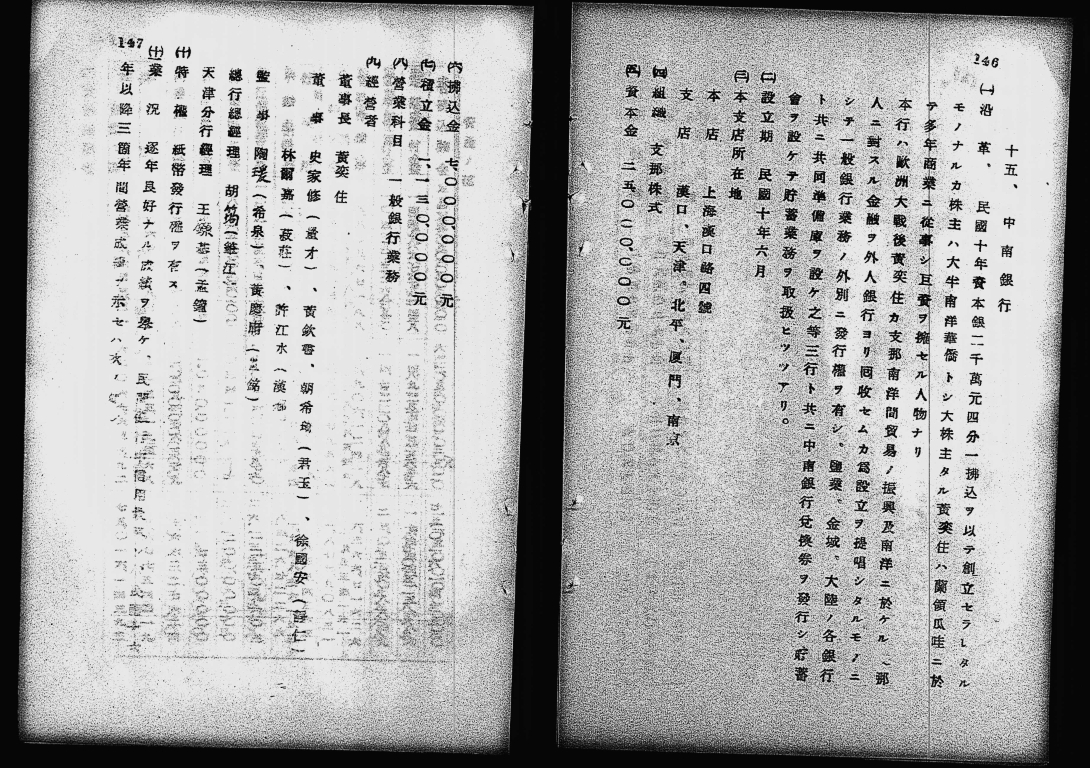 146
十五、中南銀行
㈠沿革、民國十年資本銀二千萬元四分一拂込ヲ以テ創立セラレタル
モノナルカ株主ハ大半南洋華僑トシ大株主タル黃奕住ハ蘭領瓜哇ニ於
テ多年商業ニ從事シ互資ヲ擁セル人物ナリ
本行ハ歐洲大戰後黃奕住カ支那南洋間貿易ノ振興及南洋ニ於ケル、那
人ニ對スル金融ヲ外人銀行ヨリ回收セムカ爲設立ヲ提唱シタルモノニ
シテ一般銀行業務ノ外別ニ發行權ヲ有シ。鹽業。金城。大陸ノ各銀行
ト共ニ共同準備庫ヲ設ケ之等三行ト共ニ中南銀行兌換券ヲ發行シ貯蓄
會ヲ設ケテ貯蓄業務ヲ取扱ヒツツアリ。
㈡設立期 民國十年六月
㈢本支店所在地
本店 上海漢口路四號
支店 漢口、天津。北平、厦門、南京
㈣組織 支那株式
㈤資本金 二五〇〇〇〇〇〇元
㈥拂込金 七、〇〇〇、〇〇〇、〇〇〇元
㈦積立金 一、一三〇、〇〇〇元
㈧營業科目 一般銀行業務
㈨經營者
董事長 黃奕住
董事 史家修（量才）、黃欽書、朝希（君玉）、徐國安（靜仁）
林爾嘉（菽莊）、許江水（漢
監事 陶（希泉）、黃慶（銘）
總行總經理 胡筠（江）
天津分行經理 王（孟鐘）
㈩特權 紙幣發行權ヲ有ス
業況 逐年良好ナル成績ヲ擧ケ、民
年以降三箇年間營業成示セハ次ノ
147